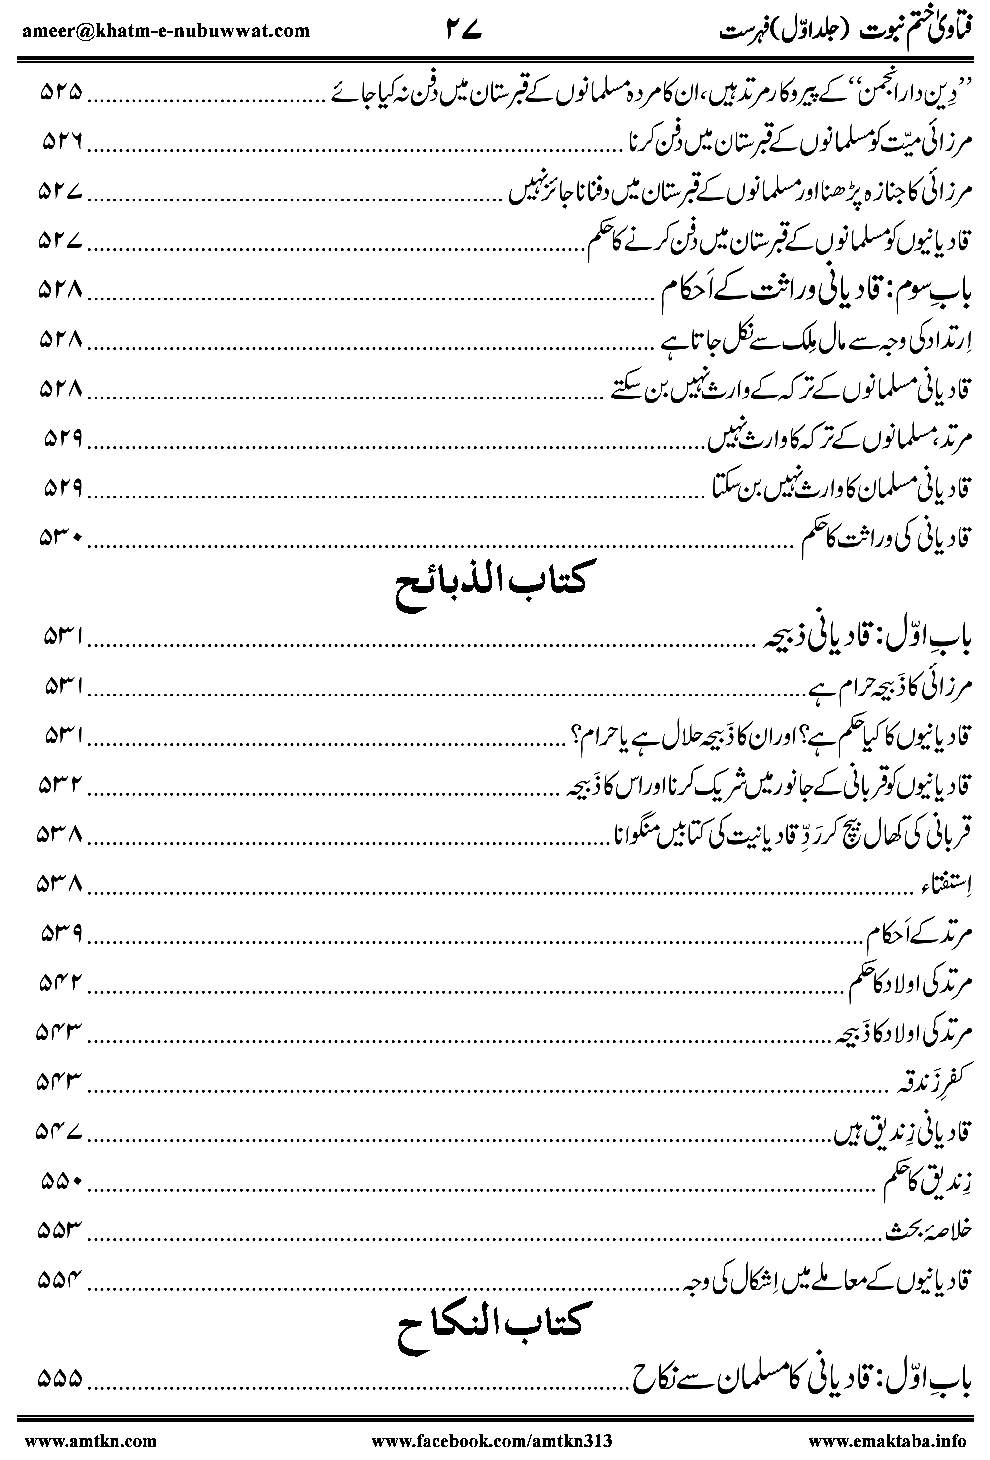 فتاویٰ ختم نبوت (جلد اوّل) فہرست ۲۷ ameer@khatm-e-nubuwwat.com
”دِین دار انجمن“ کے پیروکار مرتد ہیں، ان کا مردہ مسلمانوں کے قبرستان میں دفن نہ کیا جائے ۵۲۵
مرزائی میّت کو مسلمانوں کے قبرستان میں دفن کرنا ۵۲۶
مرزائی کا جنازہ پڑھنا اور مسلمانوں کے قبرستان میں دفنانا جائز نہیں ۵۲۷
قادیانیوں کو مسلمانوں کے قبرستان میں دفن کرنے کا حکم ۵۲۷
بابِ سوم: قادیانی وراثت کے اَحکام ۵۲۸
اِرتداد کی وجہ سے مال مِلک سے نکل جاتا ہے ۵۲۸
قادیانی مسلمانوں کے ترکہ کے وارث نہیں بن سکتے ۵۲۸
مرتد، مسلمانوں کے ترکہ کا وارث نہیں ۵۲۹
قادیانی مسلمان کا وارث نہیں بن سکتا ۵۲۹
قادیانی کی وراثت کا حکم ۵۳۰
کتاب الذبائح
بابِ اوّل: قادیانی ذبیحہ ۵۳۱
مرزائی کا ذَبیحہ حرام ہے ۵۳۱
قادیانیوں کا کیا حکم ہے؟ اور ان کا ذَبیحہ حلال ہے یا حرام؟ ۵۳۱
قادیانیوں کو قربانی کے جانور میں شریک کرنا اور اس کا ذَبیحہ ۵۳۲
قربانی کی کھال بیچ کر رَدِّ قادیانیت کی کتابیں منگوانا ۵۳۸
اِستفتاء ۵۳۸
مرتد کے اَحکام ۵۳۹
مرتد کی اولاد کا حکم ۵۴۲
مرتد کی اولاد کا ذَبیحہ ۵۴۳
کفرِ زَندقہ ۵۴۳
قادیانی زِندیق ہیں ۵۴۷
زِندیق کا حکم ۵۵۰
خلاصۂ بحث ۵۵۳
قادیانیوں کے معاملے میں اِشکال کی وجہ ۵۵۴
کتاب النکاح
بابِ اوّل: قادیانی کا مسلمان سے نکاح ۵۵۵
www.amtkn.com www.facebook.com/amtkn313 www.emaktaba.info